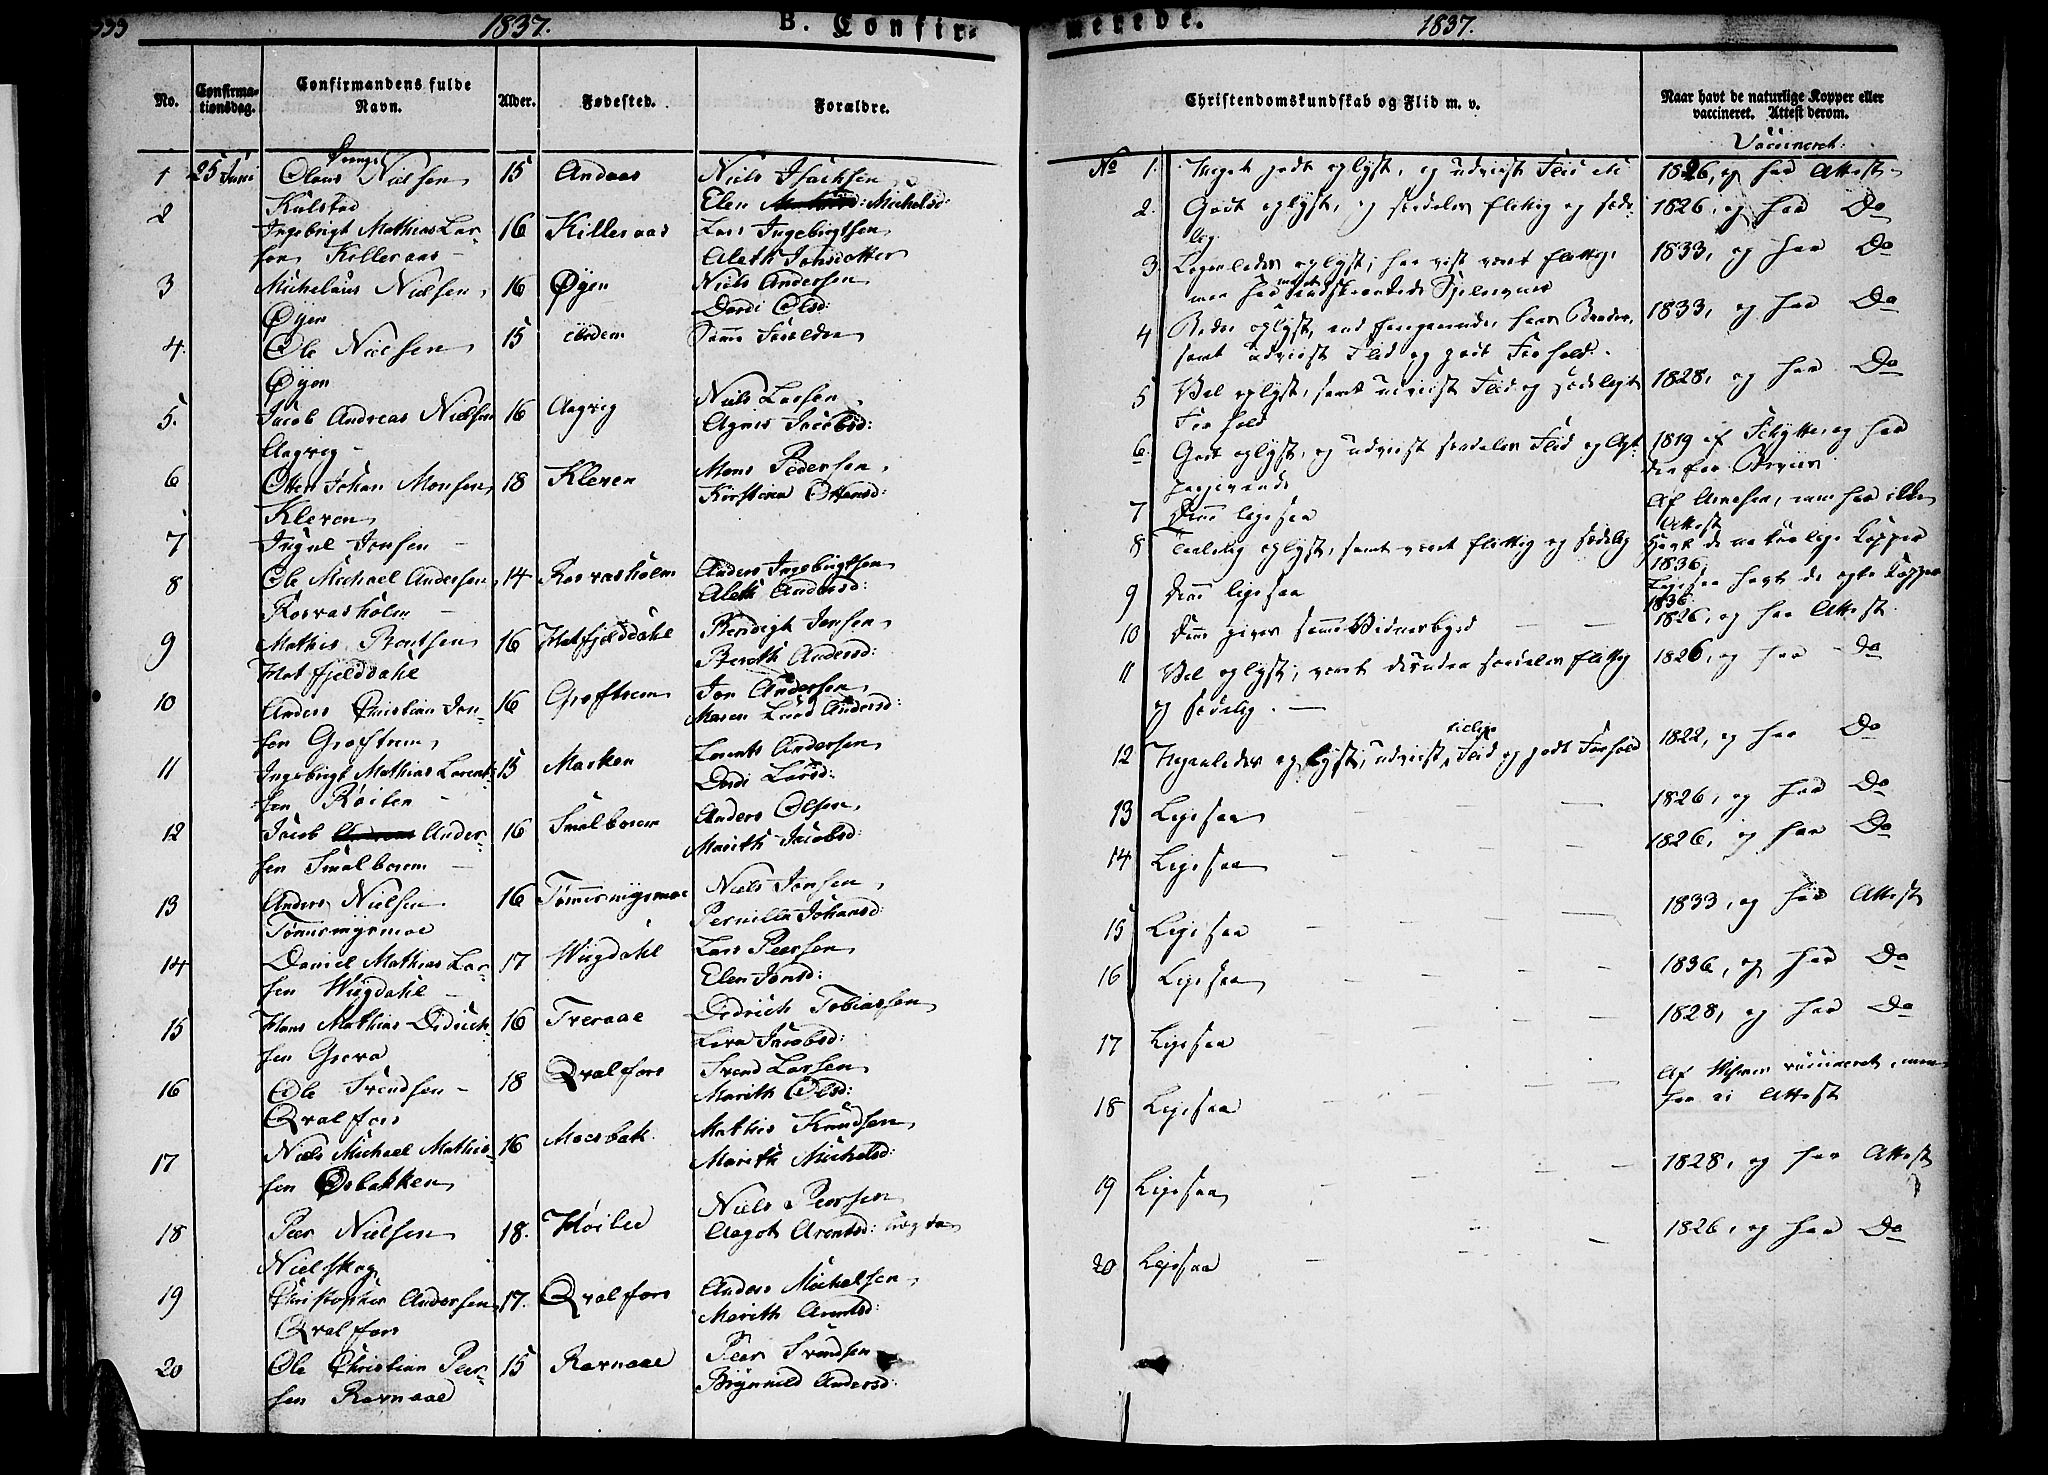 1837.
B. Confir-
No.
Confirma-
tionsdag.
Confirmandens fulde
Navn.
Alder.
Fødested.
Forældre.
1
25 Juni
Drenge
Olaus Nielsen
Kulstad
15
Andaas
Niels Isachsen
Elen Michelsd:
2
Ingebrigt Mathias Lar-
sen Killeraas
16
Killeraas
Lars Ingebrigtsen
Aleth Jonsdatter
3
Michelaus Nielsen
Øyen
16
Øyen
Niels Andersen
Dordi Olsd:
4.
Ole Nielsen
Øyen
15
ibidem
Samme Forældre
5.
Jacob Andreas Nielsen
Aagvig
16
Aagvig
Niels Larsen
Agnes Jacobsd:
6
Otter Johan Monsen
Kleven
18
Kleven
Mons Pedersen
Kirstina Ottersd:
7
Ingul Jonsen
8
Ole Michael Andersen
Rosvasholm
14
Rosvasholm
Anders Ingebrigtsen
Aleth Andersd:
9
Mathis Bentsen
Hatfjelddahl
16
Hatfjelddahl
Bendigt Jensen
Bereth Andersd:
10
Anders Christian Jon-
sen Grøftrem
16
Grøftrem
Jon Andersen
Maren Andersd:
11
Ingebrigt Mathias Lorent-
sen Røiten
15
Marken
Lorents Andersen
Dordi Larsd:
12
Jacob Ander-
sen Smalborem
16
Smalborem
Anders Olsen
Marith Jacobsd:
13
Anders Nielsen
Tømmermyrmoe
16
Tømmermyrmoe
Niels Jonsen
Pernilla Johansd:
14
Daniel Mathias Lar-
sen Wiigdahl
17
Wiigdahl
Lars Peersen
Elen Jonsd:
15
Hans Mathias Didrich-
sen
16
Tveraae
Didrich Tobiassen
Jacobsd:
16
Ole Svendsen
Qvalfors
18
Qvalfors
Svend Larsen
Marith Olsd:
17
Niels Michael Mathis-
sen Osbakken
16
Moesbak
Mathis Knudsen
Marith Michelsd:
18
Peer Nielsen
Nielskog
18.
Høiled
Niels Peersen
Aagot Arentsd:
19
Christopher Andersen
Qvalfors
17.
Qvalfors
Anders Michelsen
Marith Arentsd:
20
Ole Christian Peer-
sen Ravnaae
15
Ravnaae
Peer Svendsen
Brynnild Andersd:
merede.
1837.
Christendomskundskab og Flid m. v.
Naar havt de naturlige Kopper eller
vaccineret. Attest derom.
Vaccineret:
No 1.
Meget godt oplyst, og udviist Flid
1826, og har Attest
2.
Godt oplyst, og særdeles flittig og sæde-
lig
1826, og har Do
3
Nogenledes oplyst; har vist været flittig,
men har indskrænkede Sjelsevner
1833, og har Do
4
Bedre oplyst, end foregaaende, hans Broder,
samt udviist Flid og godt Forhold.
1833, og har Do
5
Vel oplyst, samt udviist Flid og sædeligt
Forhold
1828, og har Do
6.
Godt oplyst, og udviist særdeles Flid og
1819 af Schytte, og har
derfor Beviis
7
Denne ligesaa
Af Arnesen, men har ikke
Attest
8
Taalelig oplyst, samt været flittig og sædelig
Havt de naturlige Kopper
1836
9
Denne ligesaa
Ligesaa havt de egte Kopper
1836
10
Denne gives samme Vidnesbyrd
1826, og har Attest
11
Vel oplyst; været desuden særdeles flittig
og sædelig.
1826, og har Do
12
Nogenledes oplyst, udviist Flid og godt Forhold
1822, og har Do
13
Ligesaa
1826, og har Do
14
Ligesaa
1826, og har Do
15
Ligesaa
1833, og har Attest
16
Ligesaa
1836, og har Do
17
Ligesaa
1828, og har Do
18
Ligesaa
Af vaccineret, men
har ei Attest
19
Ligesaa
1828, og har Attest
20
Ligesaa
1826, og har Do